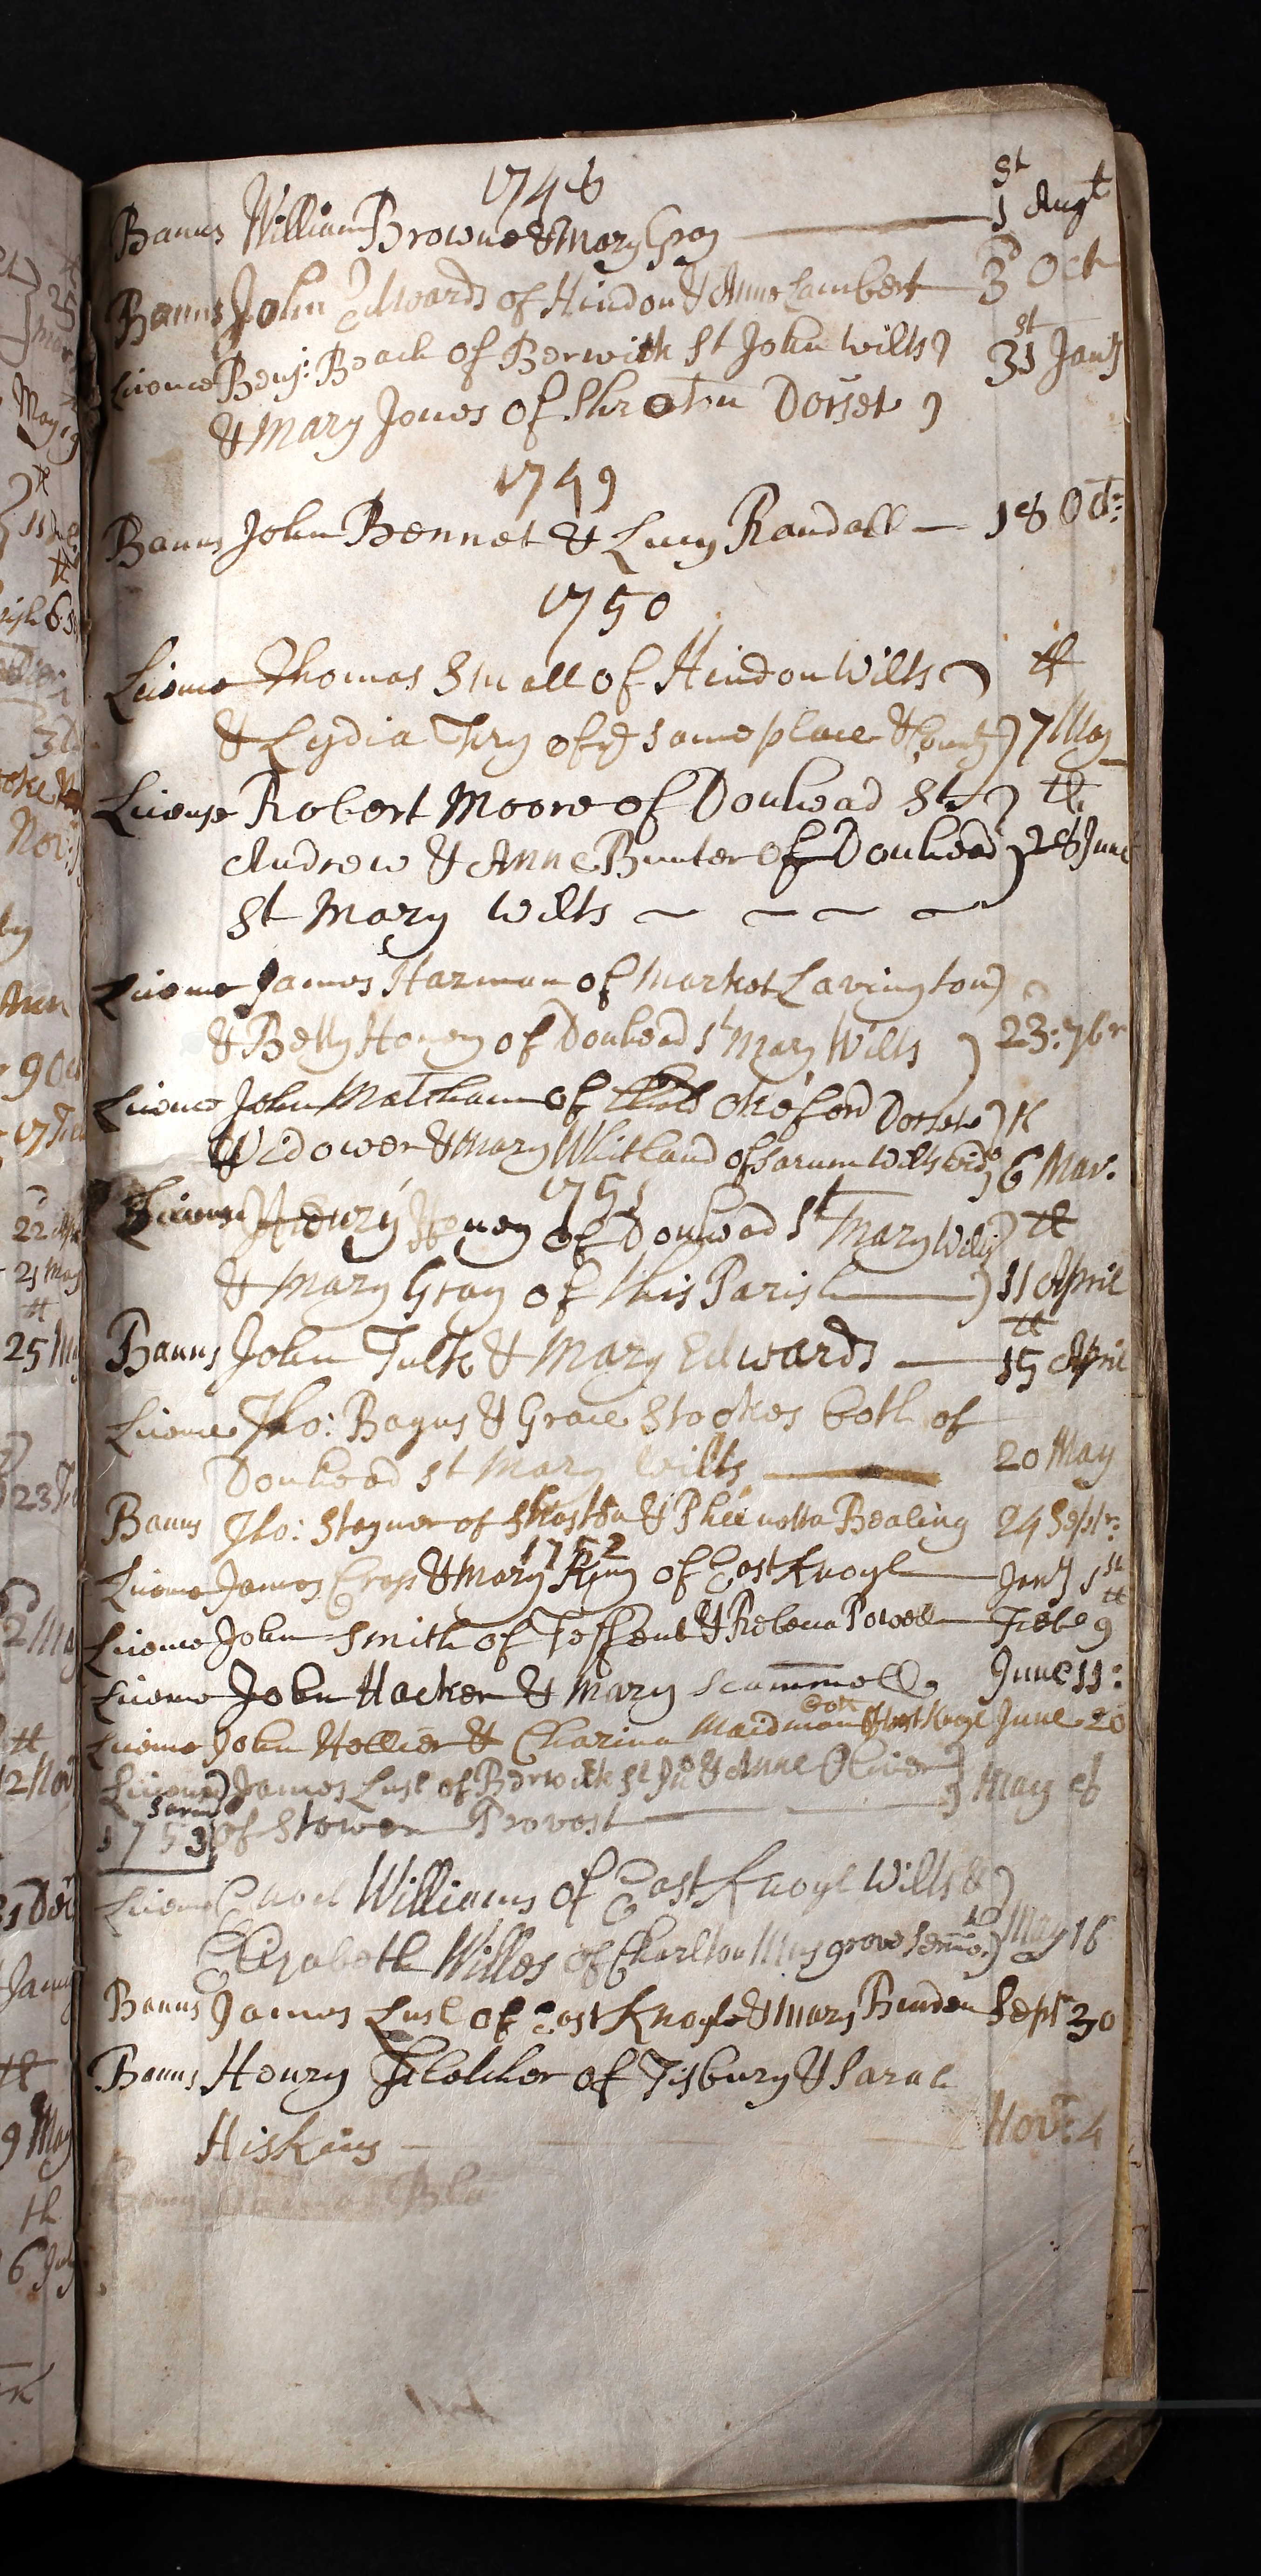 1748
st
Banns William Browne & Mary Gray 1 Augt
d
Banns John Edwards of Hindon & Anne Lambert 3 Oct
st
Licence Benj: Beach of Berwick St John Wilts 31 Janry
& Mary Jones of Shroton Dorset
1749
Banns John Bennet & Lucy Randall 18 Oct:
1750
Licence Thomas Small of Hindon Wilts th
& Lydia of ye same place & County 7 May
License Robert Moore of Donhead St th
Andrew & Anne Bunter of Donhead 28 June
St Mary Wilts
Licence James Harman of Market Lavington
& Betty Honey of Donhead St Mary Wilts 23: 7br
Licence John Matcham of Child Okeford Dorset th
Widower & Mary Whitland of Sarum Wilts Wid 6 Mar.
1751
Licence Henry Honey of Donhead St Mary Wilts th
& Mary Gray of this Parish 11 April
th
Banns John Tulk & Mary Edwards 15 April
Licence Tho: & Grace Stookes both of
Donhead St Mary Wilts 20 May
Banns Tho: of Shaston & Bealing 24 Septr:
1752
Licence James Cross & Mary King of East Knoyl Janry 1st
th
Licence John Smith of Teffent & Rebecca Powell Feb 9
Licence John Hacker & Mary Scammell June 11:
both
Licence John Hellier & Maidman of East Knoyl June 20
Licence James Lush of Berwick St Jn & Anne Oliver May 8
Sarum
1753 of Stower Provost
Licence Enoch Williams of East Knoyl Wilts &
Elizabeth Willes of Charlton Musgrove May 16
Banns James Lush of East Knoyle & Mary Burden Septr 30
Banns Henry Fletcher of Tisbury & Sarah
Hiskins Novr: 4